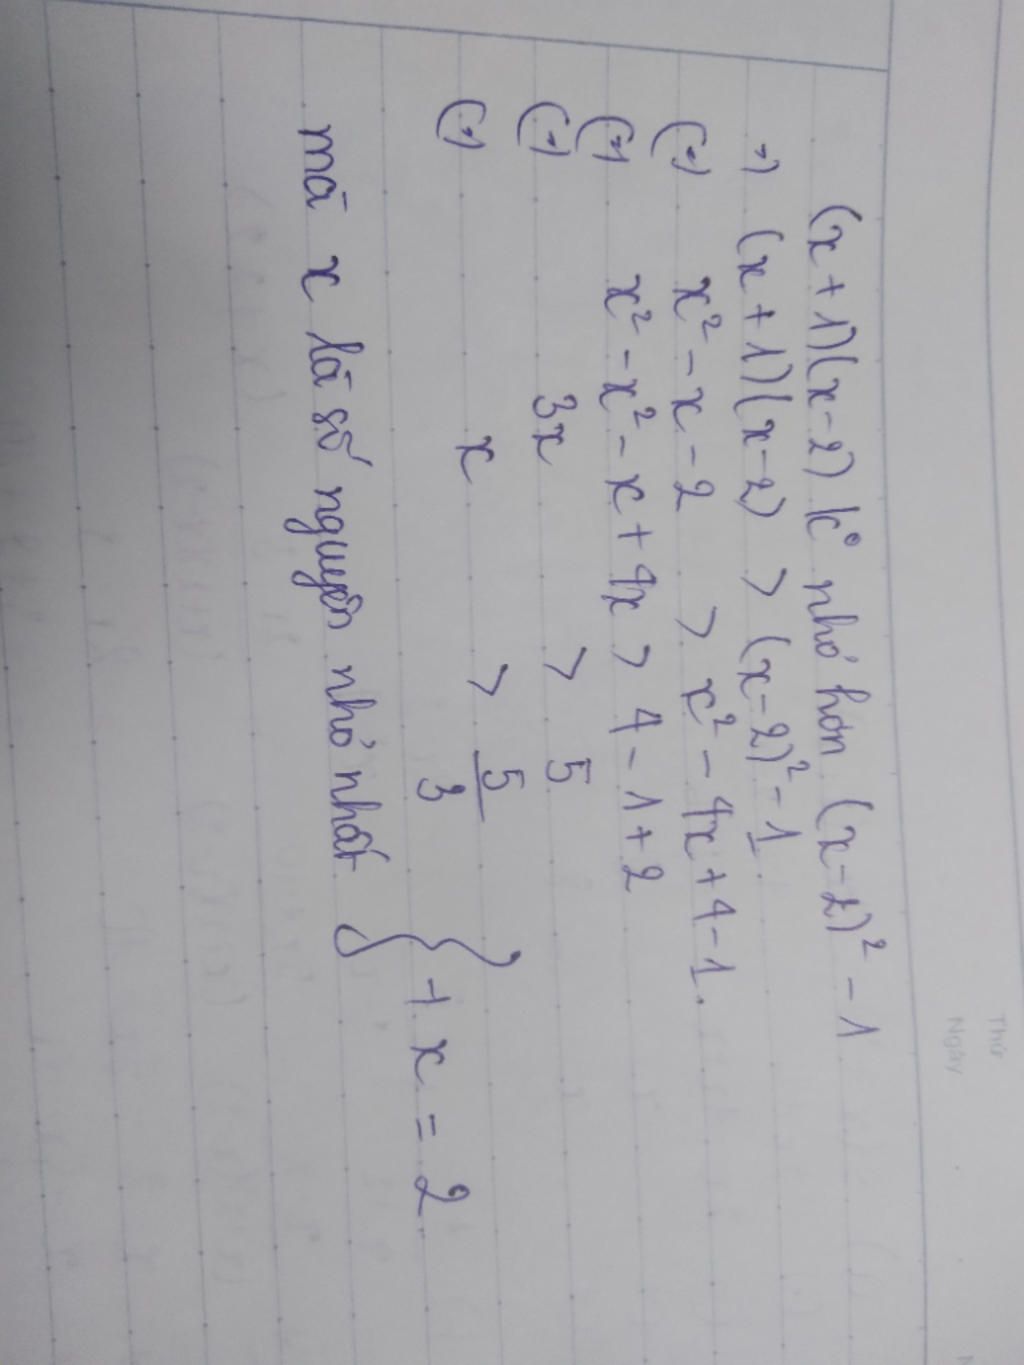 Thứ
Ngày
(x+1)(x-2) k° nhỏ hơn (x-2)² - 1
=) (x+1)(x-2) > (x-2)² - 1.
(=) x² - x - 2 > x² - 4x + 4 - 1.
(=) x² - x² - x + 4x > 4 - 1 + 2
(=) 3x > 5
(=) x > 5/3
mà x là số nguyên nhỏ nhất } =) x = 2.